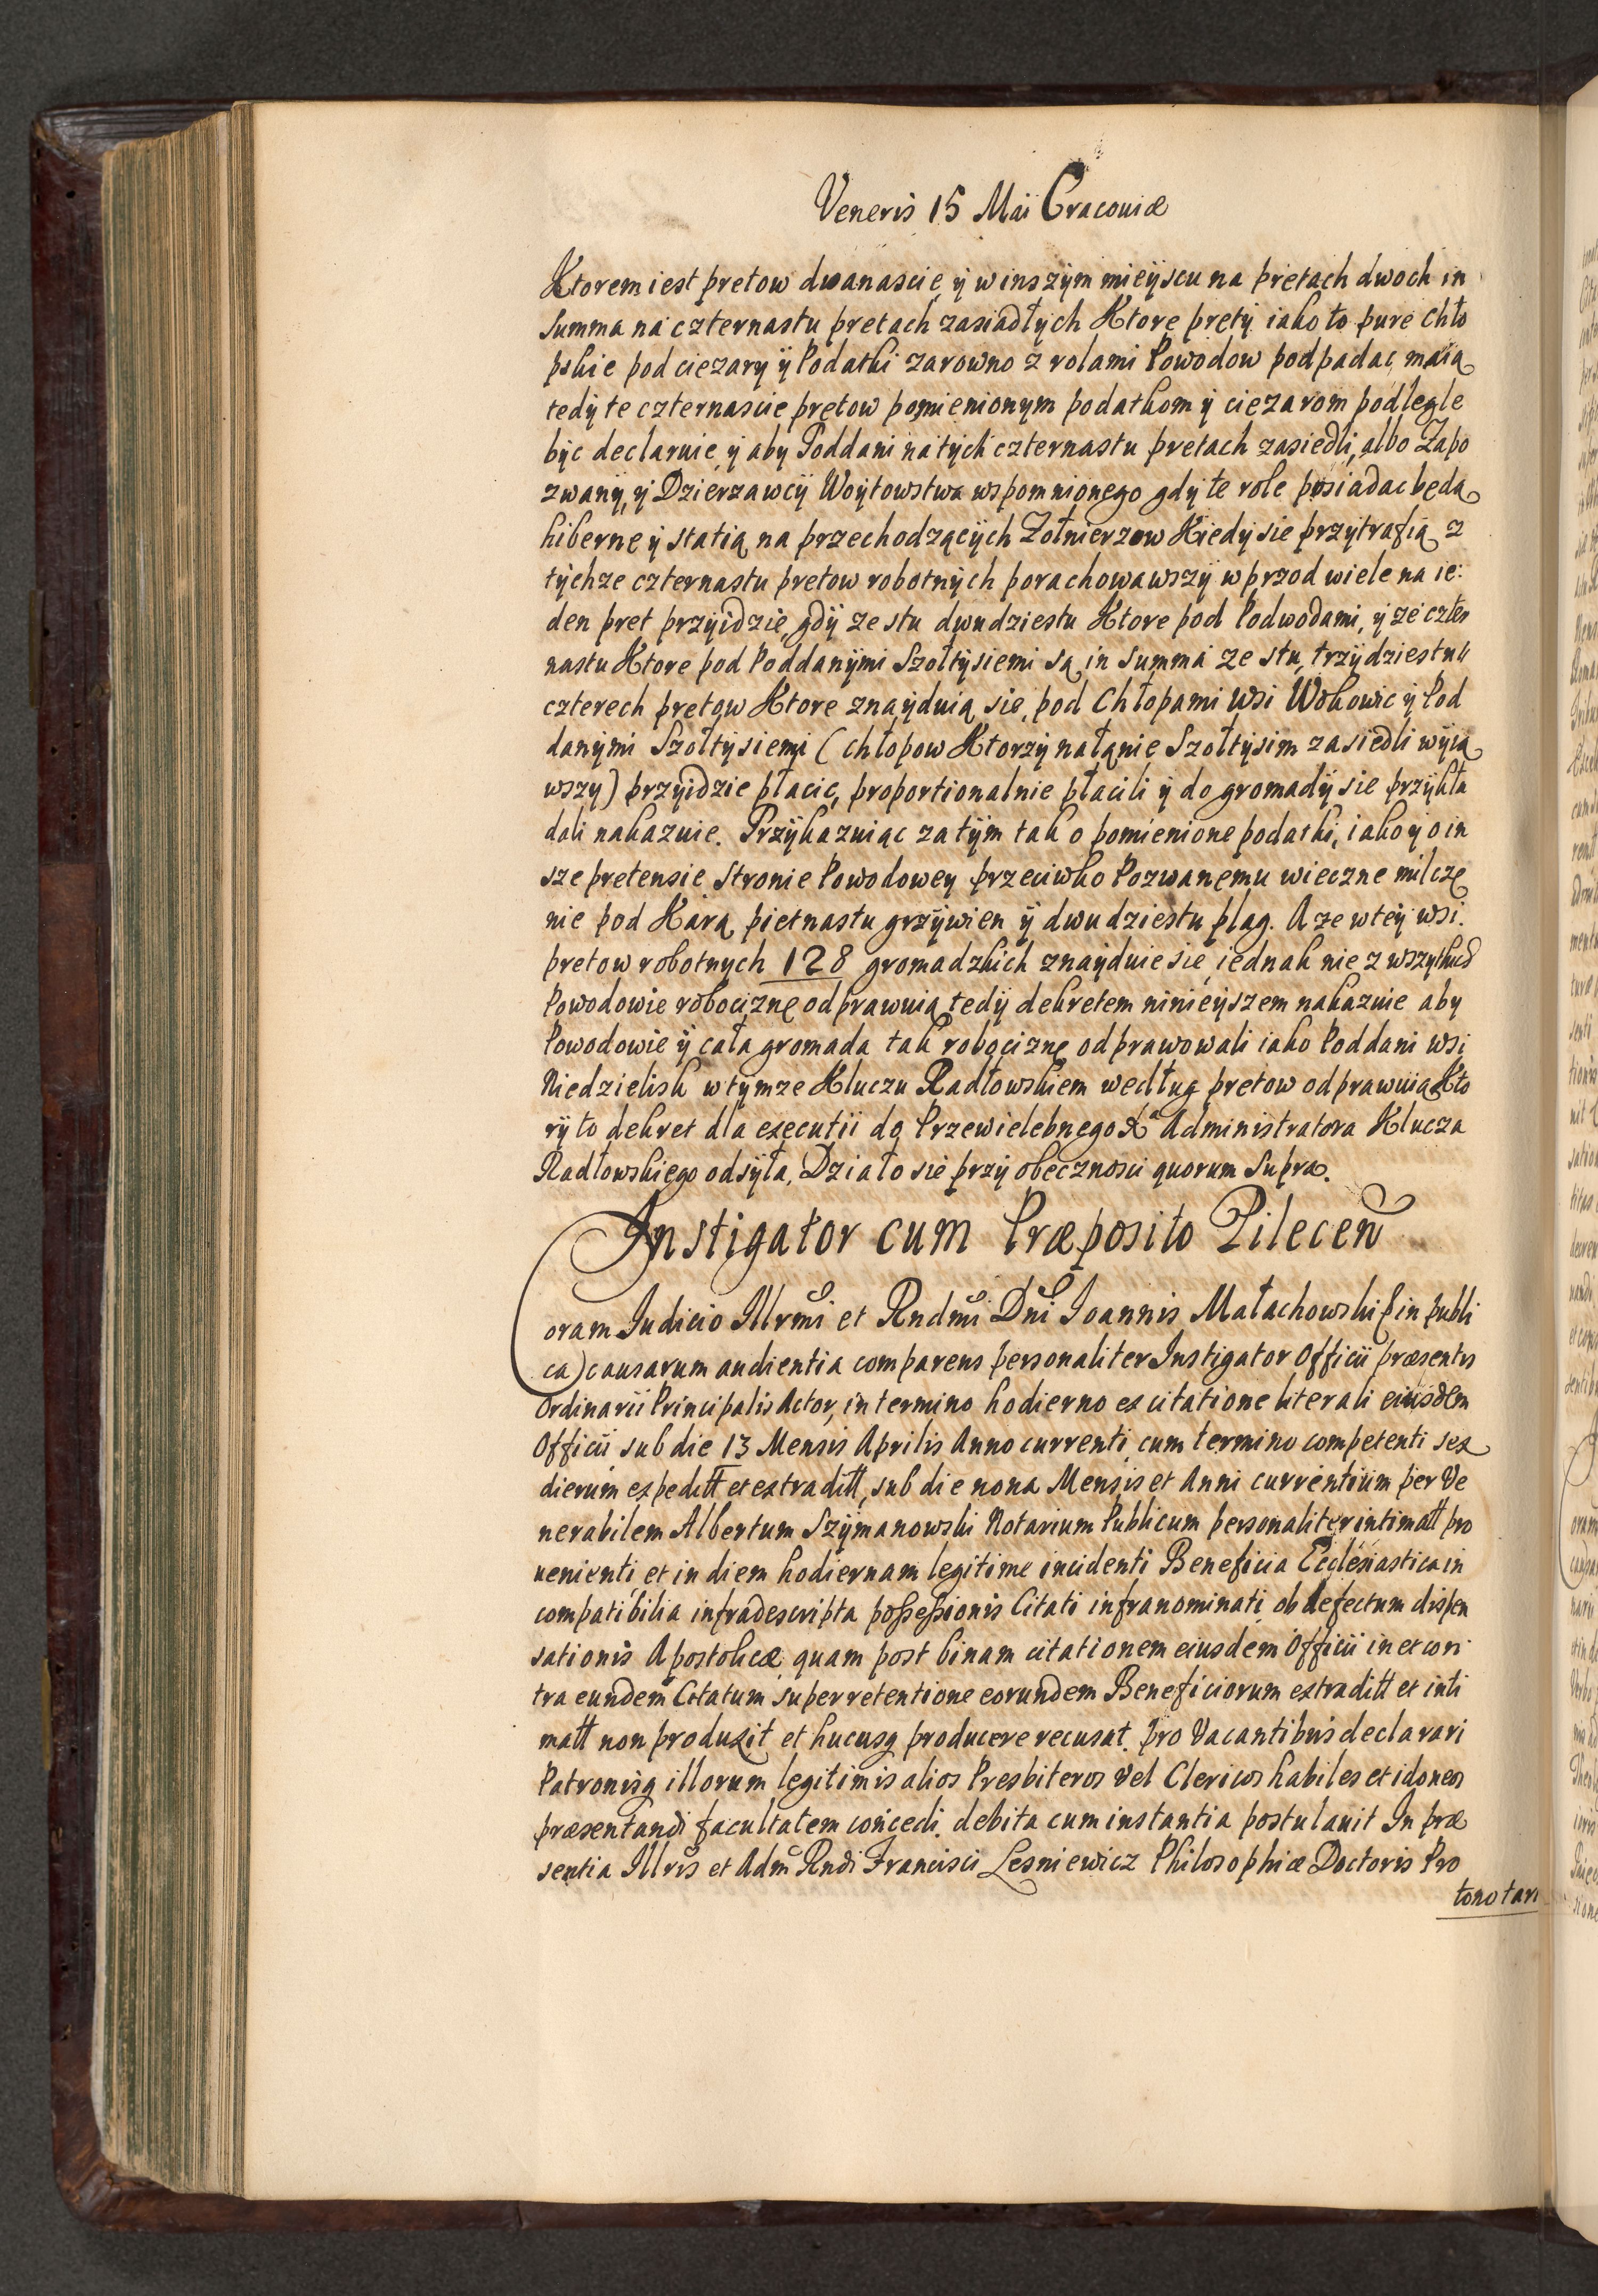 Veneris 15 Maii Cracouiæ
Ktorem iest prętow dwanascie, ÿ w inszÿm mieÿscu na prętach dwoch in
summa na czternastu pretach zasiadłÿch Ktore prętÿ iako to pure chło
pskie pod cięzary ÿ Podatki zarowno z rolami Powodow podpadac maią
tedÿ te czternascie prętow pomienionym podatkom ÿ cięzarom podlegle
bÿc declaruie, ÿ aby Poddani na tÿch czternastu pretach zasiedli, albo Zapo
zwanÿ, ÿ Dzierzawcÿ Woÿtowstwa wspomnionego gdÿ te role posiadac będą
hibernę ÿ statią na przechodzącÿch Zołnierzow Kiedÿ sie przÿtrafią z
tÿchze czternastu prętow robotnÿch porachowawszÿ w przod wiele na ie:
den pret przÿidzie, gdÿ ze stu dwudziestu Ktore pod Podwodami, ÿ ze czter
nastu Ktore pod Poddanÿmi Szołtÿsiemi są in summa ze stu trzÿdziestu
czterech prętow Ktore znaÿduią się, pod Chłopami Wsi Wokowic ÿ Pod
danÿmi Szołtÿsiemi (chłopow Ktorzÿ na łanie Szołtÿsim zasiedli wÿią
wszy) przÿidzie płacic, proportionalnie płacili ÿ do gromadÿ sie przÿkła
dali nakazuie. Przÿkazuiąc zatÿm tak o pomienione podatki, iako ÿ o in
sze pretensie Stronie Powodowey przeciwko Pozwanemu wieczne milcze
nie pod Karą pietnastu grzÿwien ÿ dwudziestu plag. A ze w teÿ wsi
pretow robotnych 128 gromadzkich znaÿduie sie, iednak nie z wszÿtkich
Powodowie robociznę odprawuią tedÿ dekretem ninieÿszem nakazuie aby
Powodowie ÿ cała gromada tak robociznę odprawowali iako Poddani wsi
Niedzielisk w tÿmze Kluczu Radłowskiem według pretow odprawuią Kto
rÿ to dekret dla executii do Przewielebnego Xa Administratora Klucza
Radłowskiego odsÿła, Działo sie przÿ obecznosci quorum supra.
Instigator cum Præposito Pilecen
Coram Judicio Illrmi et Rndmi Dni Joannis Małachowski (in publi
ca) causarum audientia comparens personaliter Instigator Officii præsentis
Ordinarii Principalis Actor, in termino hodierno ex citatione literali eiusdem
Officii sub die 13 Mensis Aprilis Anno currenti cum termino competenti sex
dierum expeditt et extraditt, sub die nona Mensis et Anni currentium per Ve
nerabilem Albertum Szÿmanowski Notarium Publicum personaliter intimatt pro
uenienti, et in diem hodiernam legitime incidenti Beneficia Ecclesiastica in
compatibilia infradescripta possessionis Citati infranominati ob defectum dispen
sationis Apostolicæ quam post binam citationem eiusdem Officii in et con
tra eundem Citatum super retentione eorundem Beneficiorum extraditt et inti
matt non produxit et hucusq producere recusat pro Vacantibus declarari
Patronisq illorum legitimis alios Presbiteros vel Clericos habiles et idoneos
præsentandi facultatem concedi. debita cum instantia postulauit In præ
sentia Illris et Adm Rndi Francisci Lesniewicz Philosophiæ Doctoris Pro
tonotari